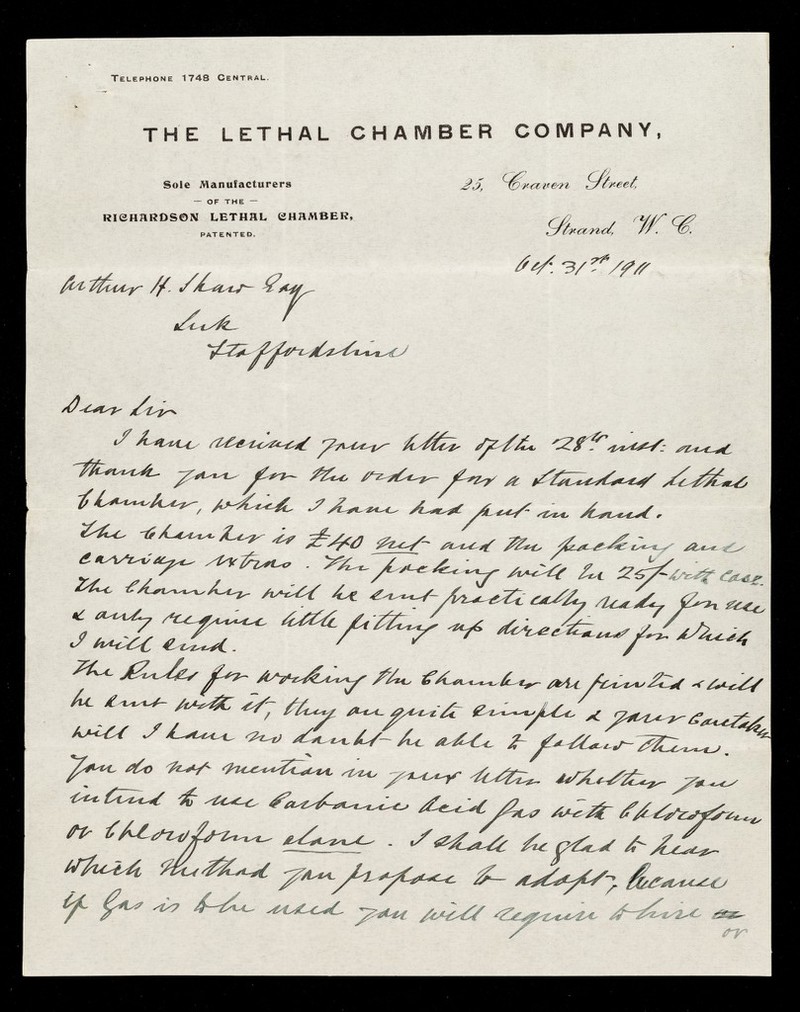 TELEPHONE 1748 CENTRAL.
THE LETHAL CHAMBER COMPANY,
Sole Manufacturers
— OF THE —
RICHARDSON LETHAL CHAMBER,
PATENTED.
25, Craven Street,
Strand, W. C.
Oct. 31st 1911
Arthur H. Shaw Esq
Leek
Staffordshire
Dear Sir
I have received your letter of the 28th inst: and
thank you for the order for a Standard Lethal
Chamber, which I have had put in hand.
The Chamber is £40 net and the packing and
carriage extras. The packing will be 25/- with case.
The Chamber will be sent practically ready for use
& only require little fitting up directions for which
I will send.
The Rules for working the Chamber are printed & will
be sent with it, they are quite simple & your Caretaker
will I have no doubt be able to follow them.
You do not mention in your letter whether you
intend to use Carbonic Acid Gas with Chloroform
or Chloroform alone. I shall be glad to hear
which method you propose to adopt, because
if Gas is to be used you will require to hire or
or